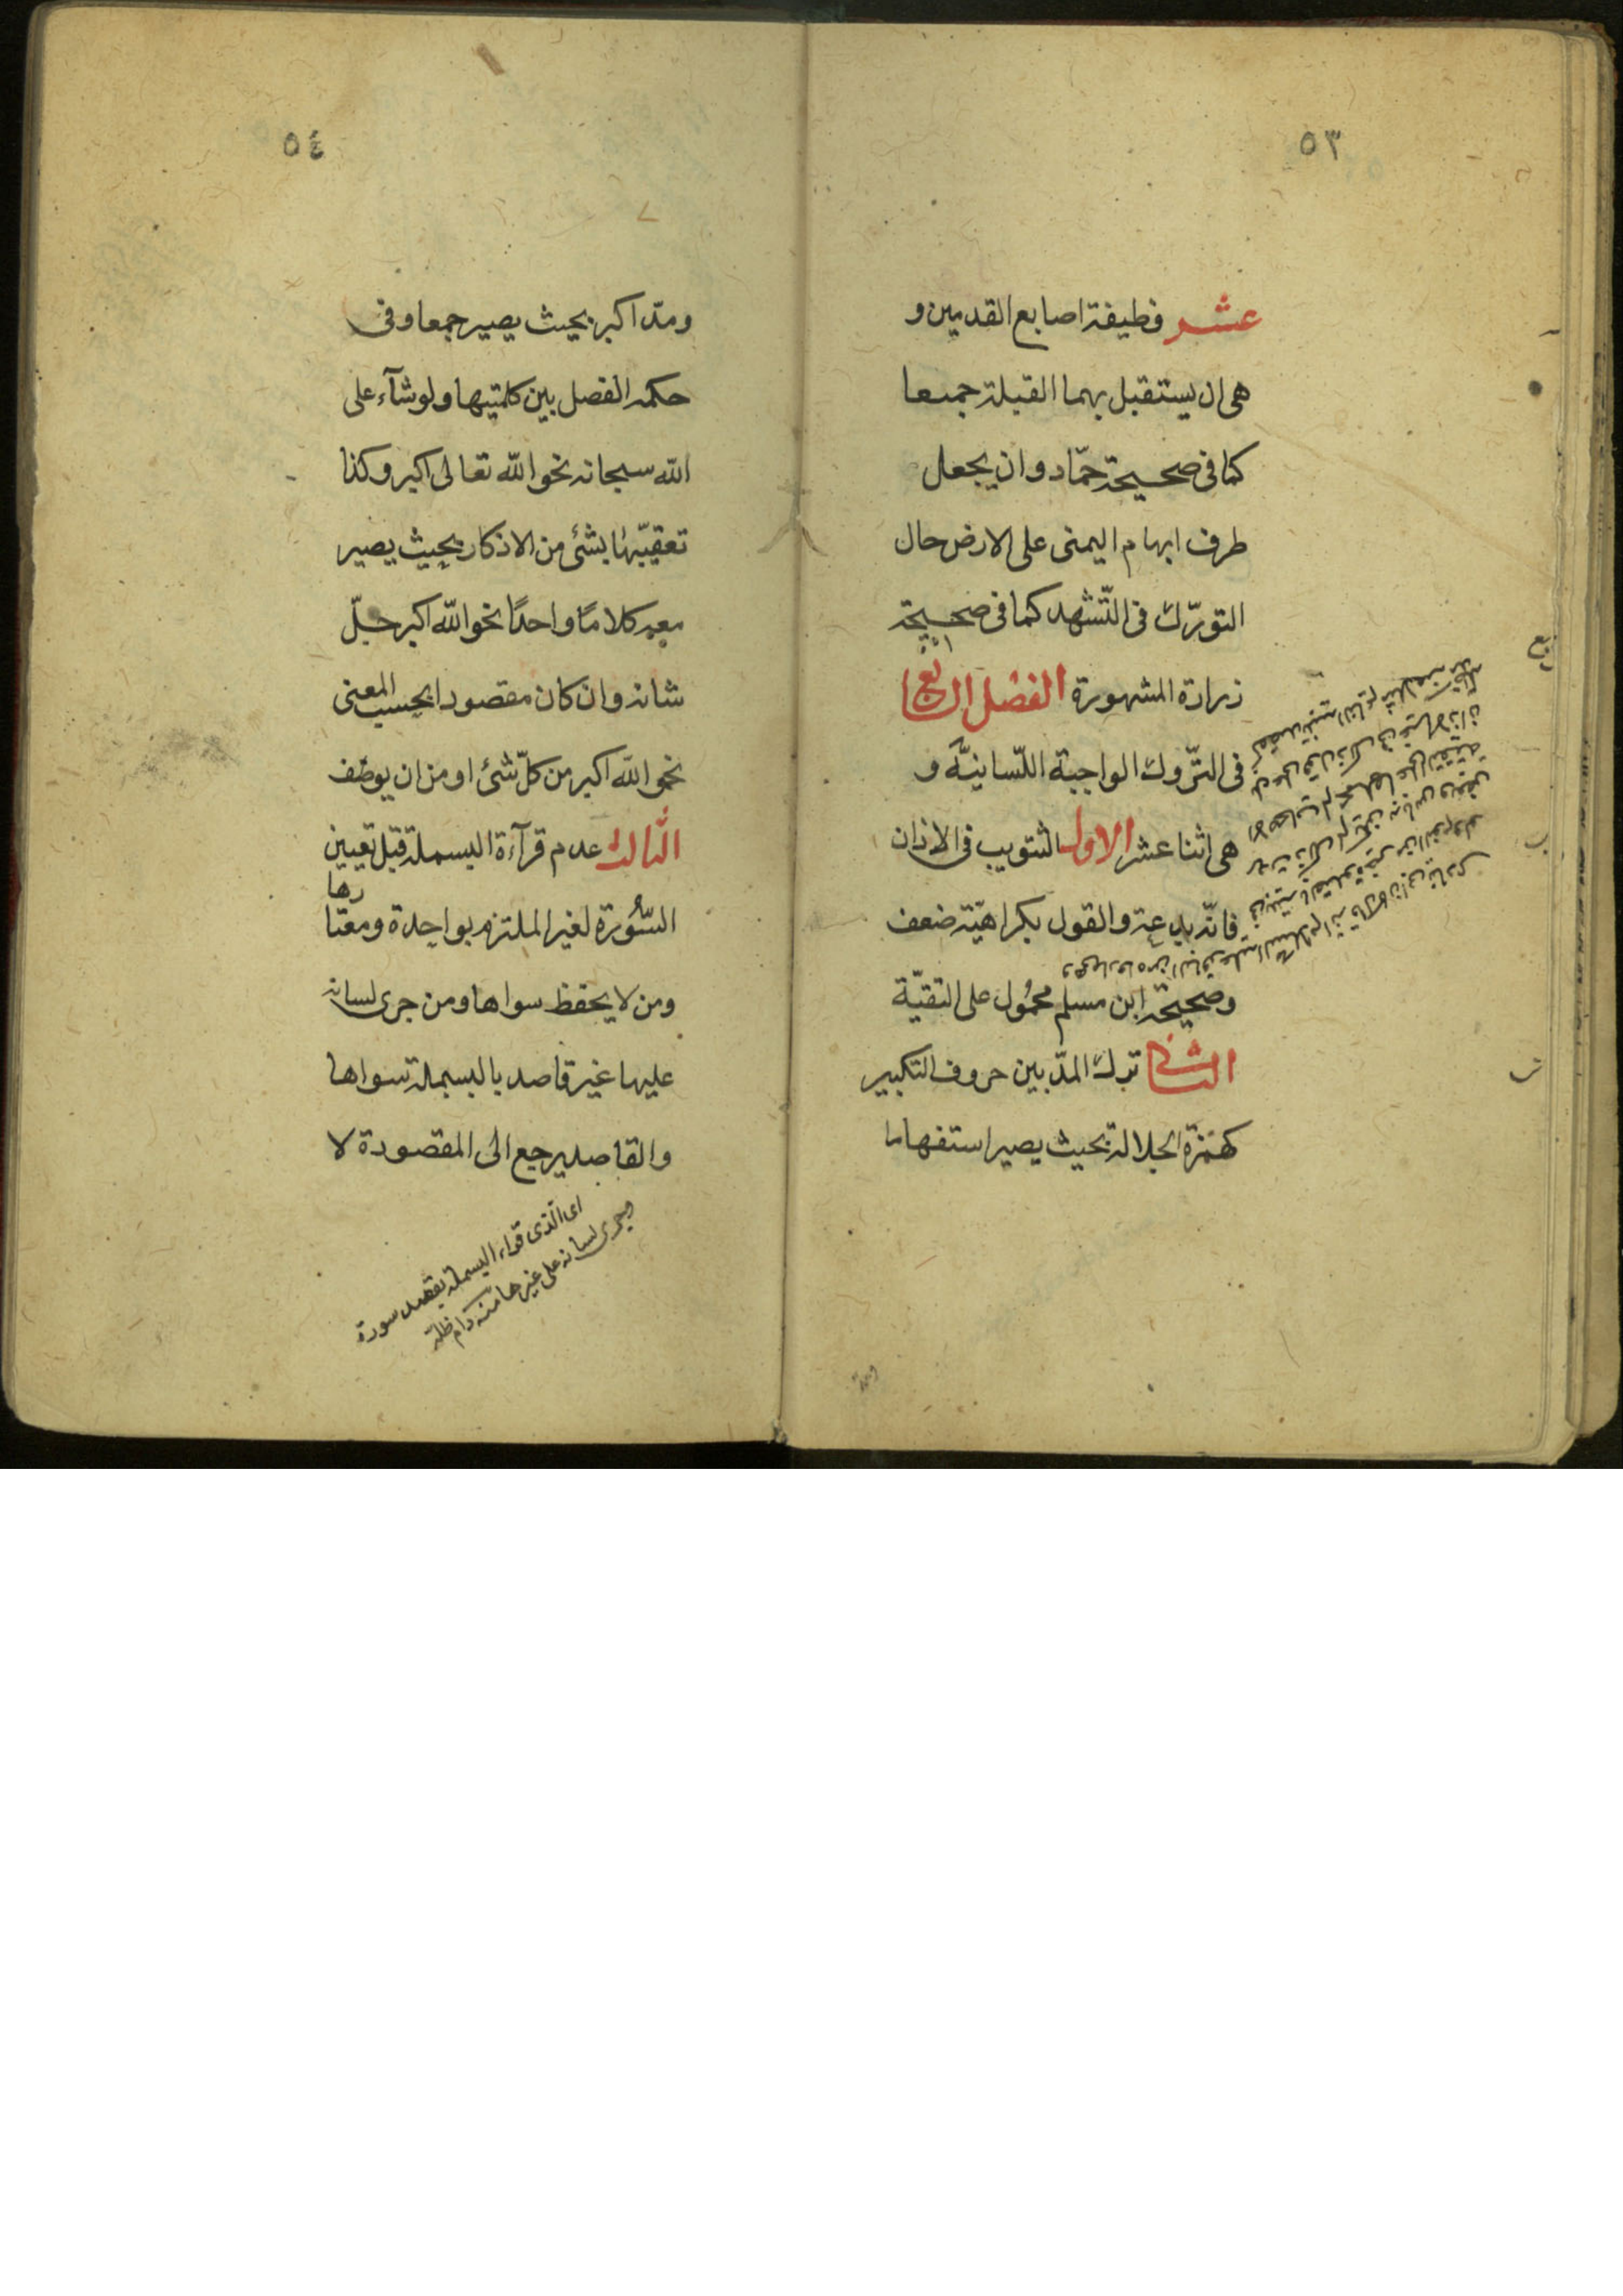 ٥٣
عشر وظيفة اصابع القدمين و
هى ان يستقبل بهما القبلة جميعا
كما فى صحيحة حمّاد وان يجعل
طرف ابهام اليمنى على الارض حال
التورّك فى التّشهد كما فى صحيحة
زرارة المشهورة الفصل الرابع
فى التّروك الواجبة اللّسانيّة و
هى اثنا عشر الاول التثويب فى الاذان
فانّه بدعة والقول بكراهيّته ضعف
وصحيحة ابن مسلم محمُول على التقيّة
الثانى ترك المدّ بين حروف التكبير
كهمزة الجلالة بحيث يصير استفهاما
٥٤
ومدّ اكبر بحيث يصير جمعا وفى
حكمه الفصل بين كلمتيها ولو شآء على
الله سبحانه نحو الله تعالى اكبر وكذا
تعقيبّها بشئ من الاذكار بحيث يصير
معه كلامًا واحدًا نحو الله اكبر جلّ
شانه وان كان مقصودا بحسب المعنى
نحو الله اكبر من كلّ شئ او من ان يوصف
الثالث عدم قرآءة البسملة قبل تعيين
السُّورة لغير الملتزم بواحدة ومعتادها
ومن لا يحفظ سواها ومن جرى لسانه
عليها غير قاصد بالبسملة سواها
والقاصد يرجع الى المقصودة لا
اى الّذى قراء البسملة بقصد سورة
ويجرى لسانه على غيرها منه دام ظله